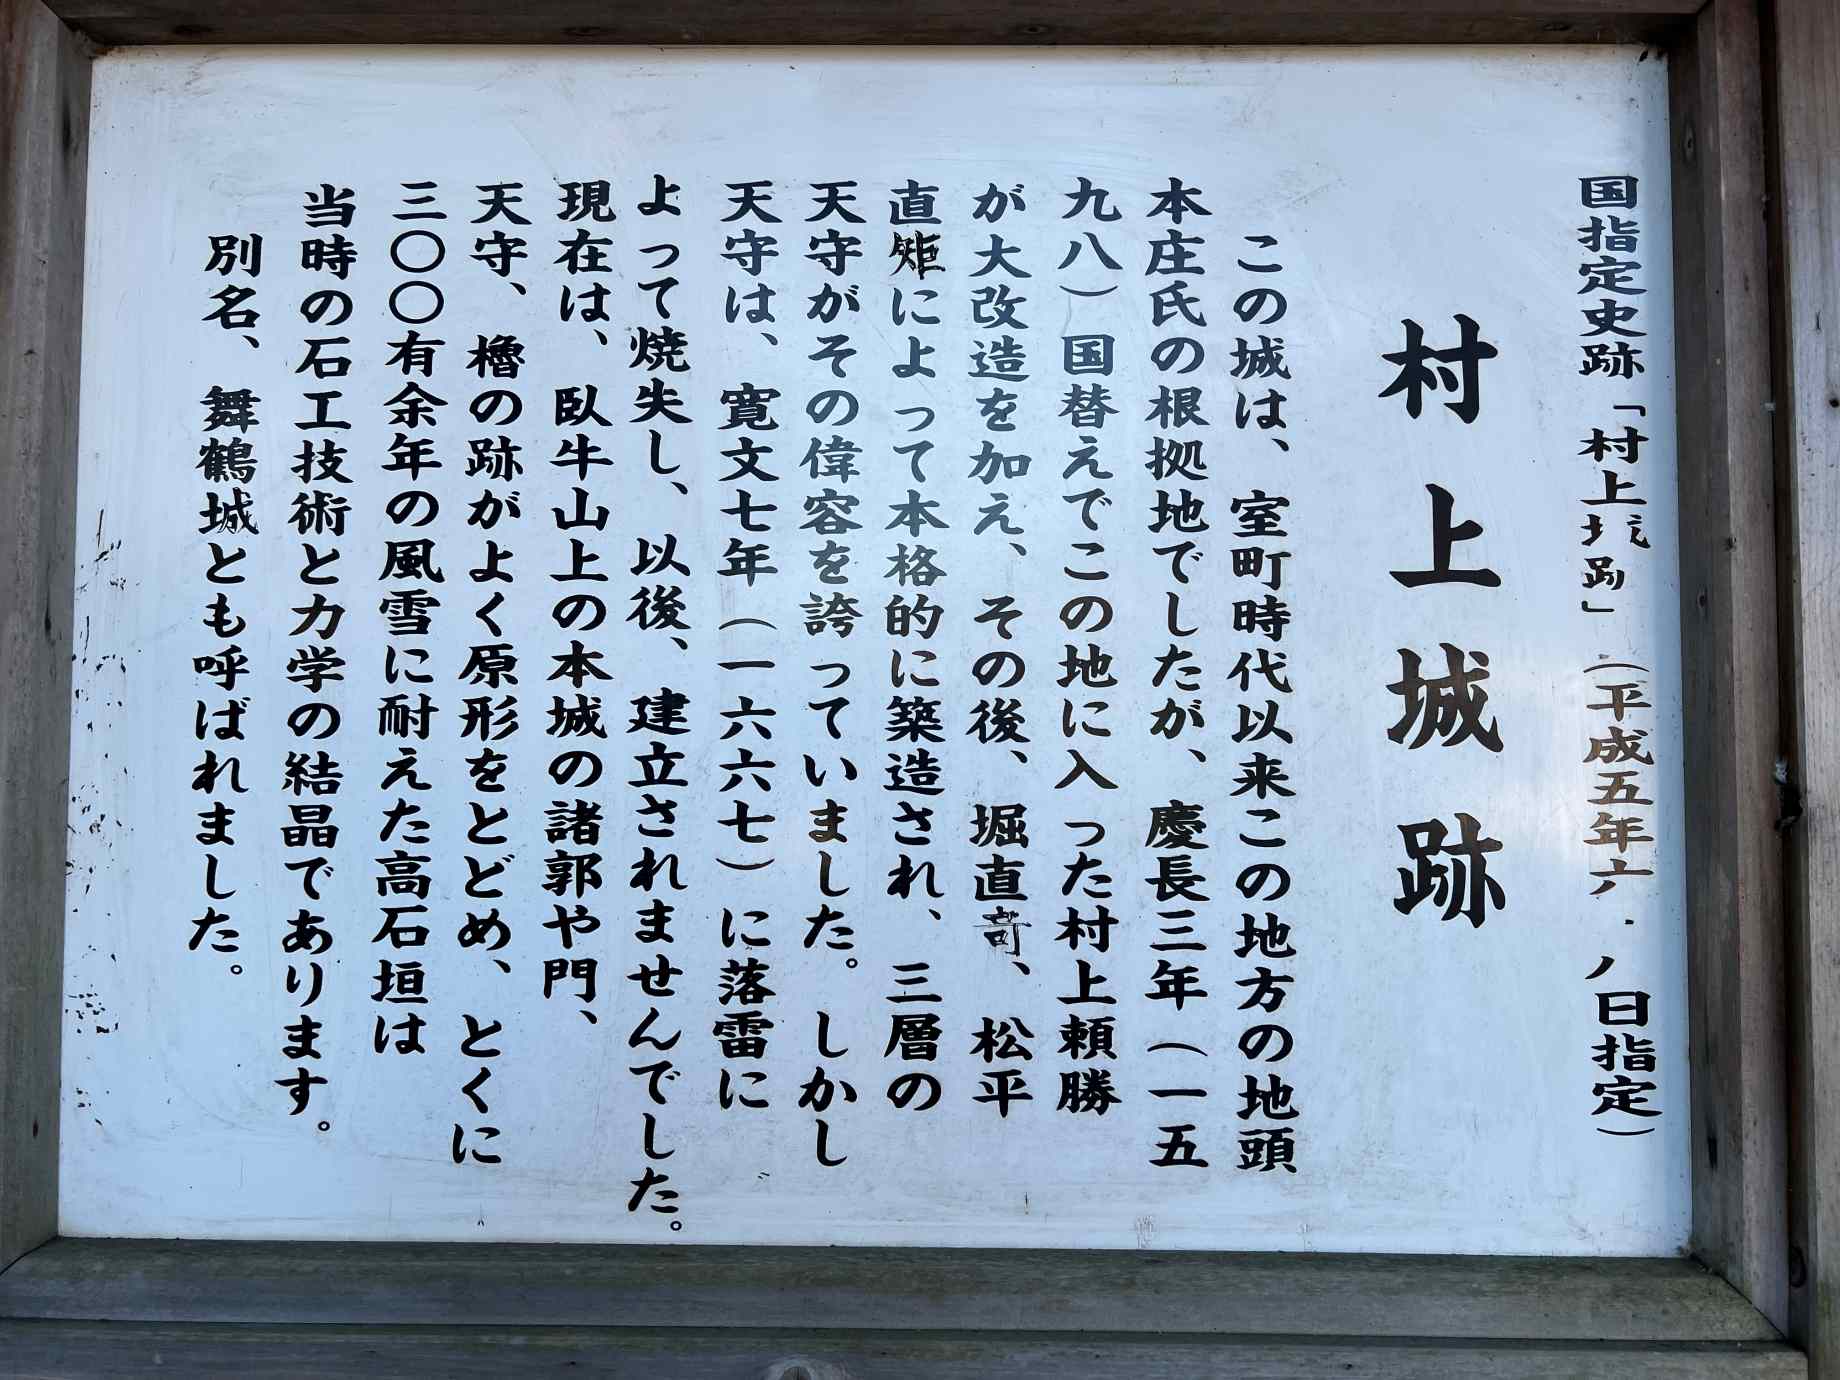 国指定史跡「村上城跡」(平成五年六月八日指定)
村上城跡
この城は、室町時代以来この地方の地頭
本庄氏の根拠地でしたが、慶長三年(一五
九八)国替えでこの地に入った村上頼勝
が大改造を加え、その後、堀直竒、松平
直矩によって本格的に築造され、三層の
天守がその偉容を誇っていました。しかし
天守は、寛文七年(一六六七)に落雷に
よって焼失し、以後、建立されませんでした。
現在は、臥牛山上の本城の諸郭や門、
天守、櫓の跡がよく原形をとどめ、とくに
三〇〇有余年の風雪に耐えた高石垣は
当時の石工技術と力学の結晶であります。
別名、舞鶴城とも呼ばれました。